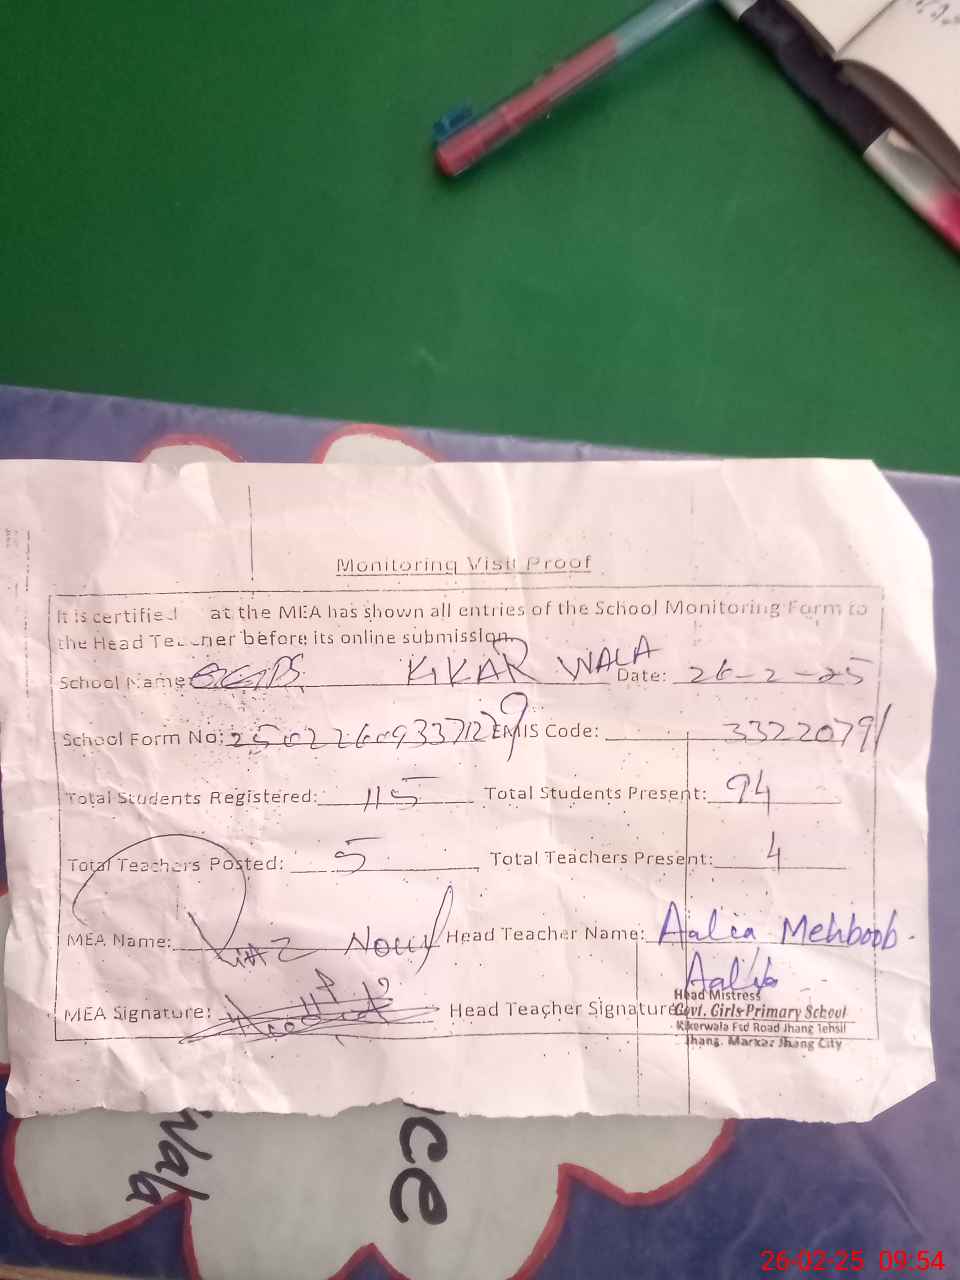 Monitoring Visit Proof
It is certified at the MEA has shown all entries of the School Monitoring Form to
the Head Teacher before its online submission.
School Name GGPS KIKAR WALA Date: 26-2-25
School Form No: EMIS Code: 33220791
Total Students Registered: 115 Total Students Present: 94
Total Teachers Posted: 5 Total Teachers Present: 4
MEA Name: Head Teacher Name: Aalia Mehboob.
Aalia
MEA Signature: Head Teacher Signature
Head Mistress
Govt. Girls Primary School
Kikerwala Fsd Road Jhang Tehsil
Jhang. Markaz Jhang City
wala
ce
26-02-25 09:54